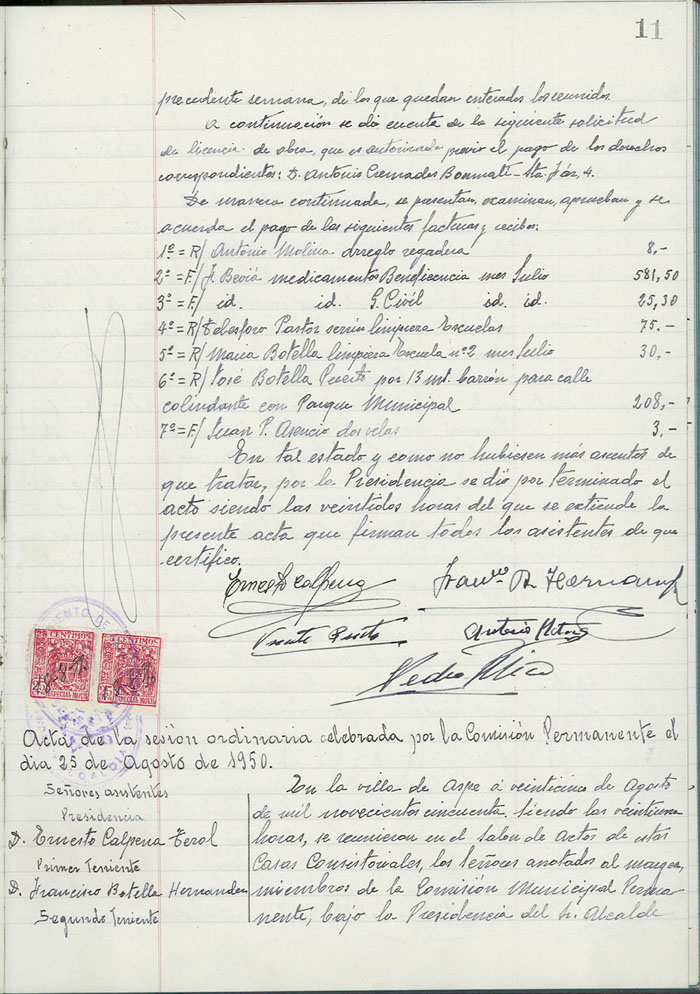 11
precedente semana, de los que quedan enterados los reunidos.
A continuación se dá cuenta de la siguiente solicitud
de licencia de obra, que es autorizada previo el pago de los derechos
correspondientes: D. Antonio Cremades Bonmatí - Sta. Faz, 4.
De manera continuada, se presentan, examinan, aprueban y se
acuerda el pago de las siguientes facturas y recibos:
1º = R/ Antonio Molina arreglo regadera 8,-
2º = F/ J. Beviá medicamentos Beneficencia mes Julio 581,50
3º = F/ id. id. G. Civil id. id. 25,30
4º = R/ Telesforo Pastor serrín limpieza Escuelas 75,-
5º = R/ María Botella limpieza Escuela nº 2 mes Julio 30,-
6º = R/ José Botella por 13 mt. barrón para calle
colindante con Parque Municipal 208,-
7º = F/ Juan P. Asencio dos velas 3,-
En tal estado y como no hubiesen más asuntos de
que tratar, por la Presidencia se dió por terminado el
acto siendo las veintidos horas del que se extiende la
presente acta que firman todos los asistentes de que
certifico.
Ernesto Calpena
Vicente
Antonio
Pedro
CENTIMOS CENTIMOS
ESPECIAL MOVIL
Acta de la sesión ordinaria celebrada por la Comisión Permanente el
dia 25 de Agosto de 1950.
Señores asistentes
Presidencia
D. Ernesto Calpena Terol
Primer Teniente
D. Francisco Botella Hernandez
Segundo Teniente
En la villa de Aspe a veinticinco de Agosto
de mil novecientos cincuenta, siendo las veintiuna
horas, se reunieron en el salon de actos de estas
Casas Consistoriales, los señores anotados al margen,
miembros de la Comisión Municipal Perma
nente, bajo la Presidencia del Sr. Alcalde